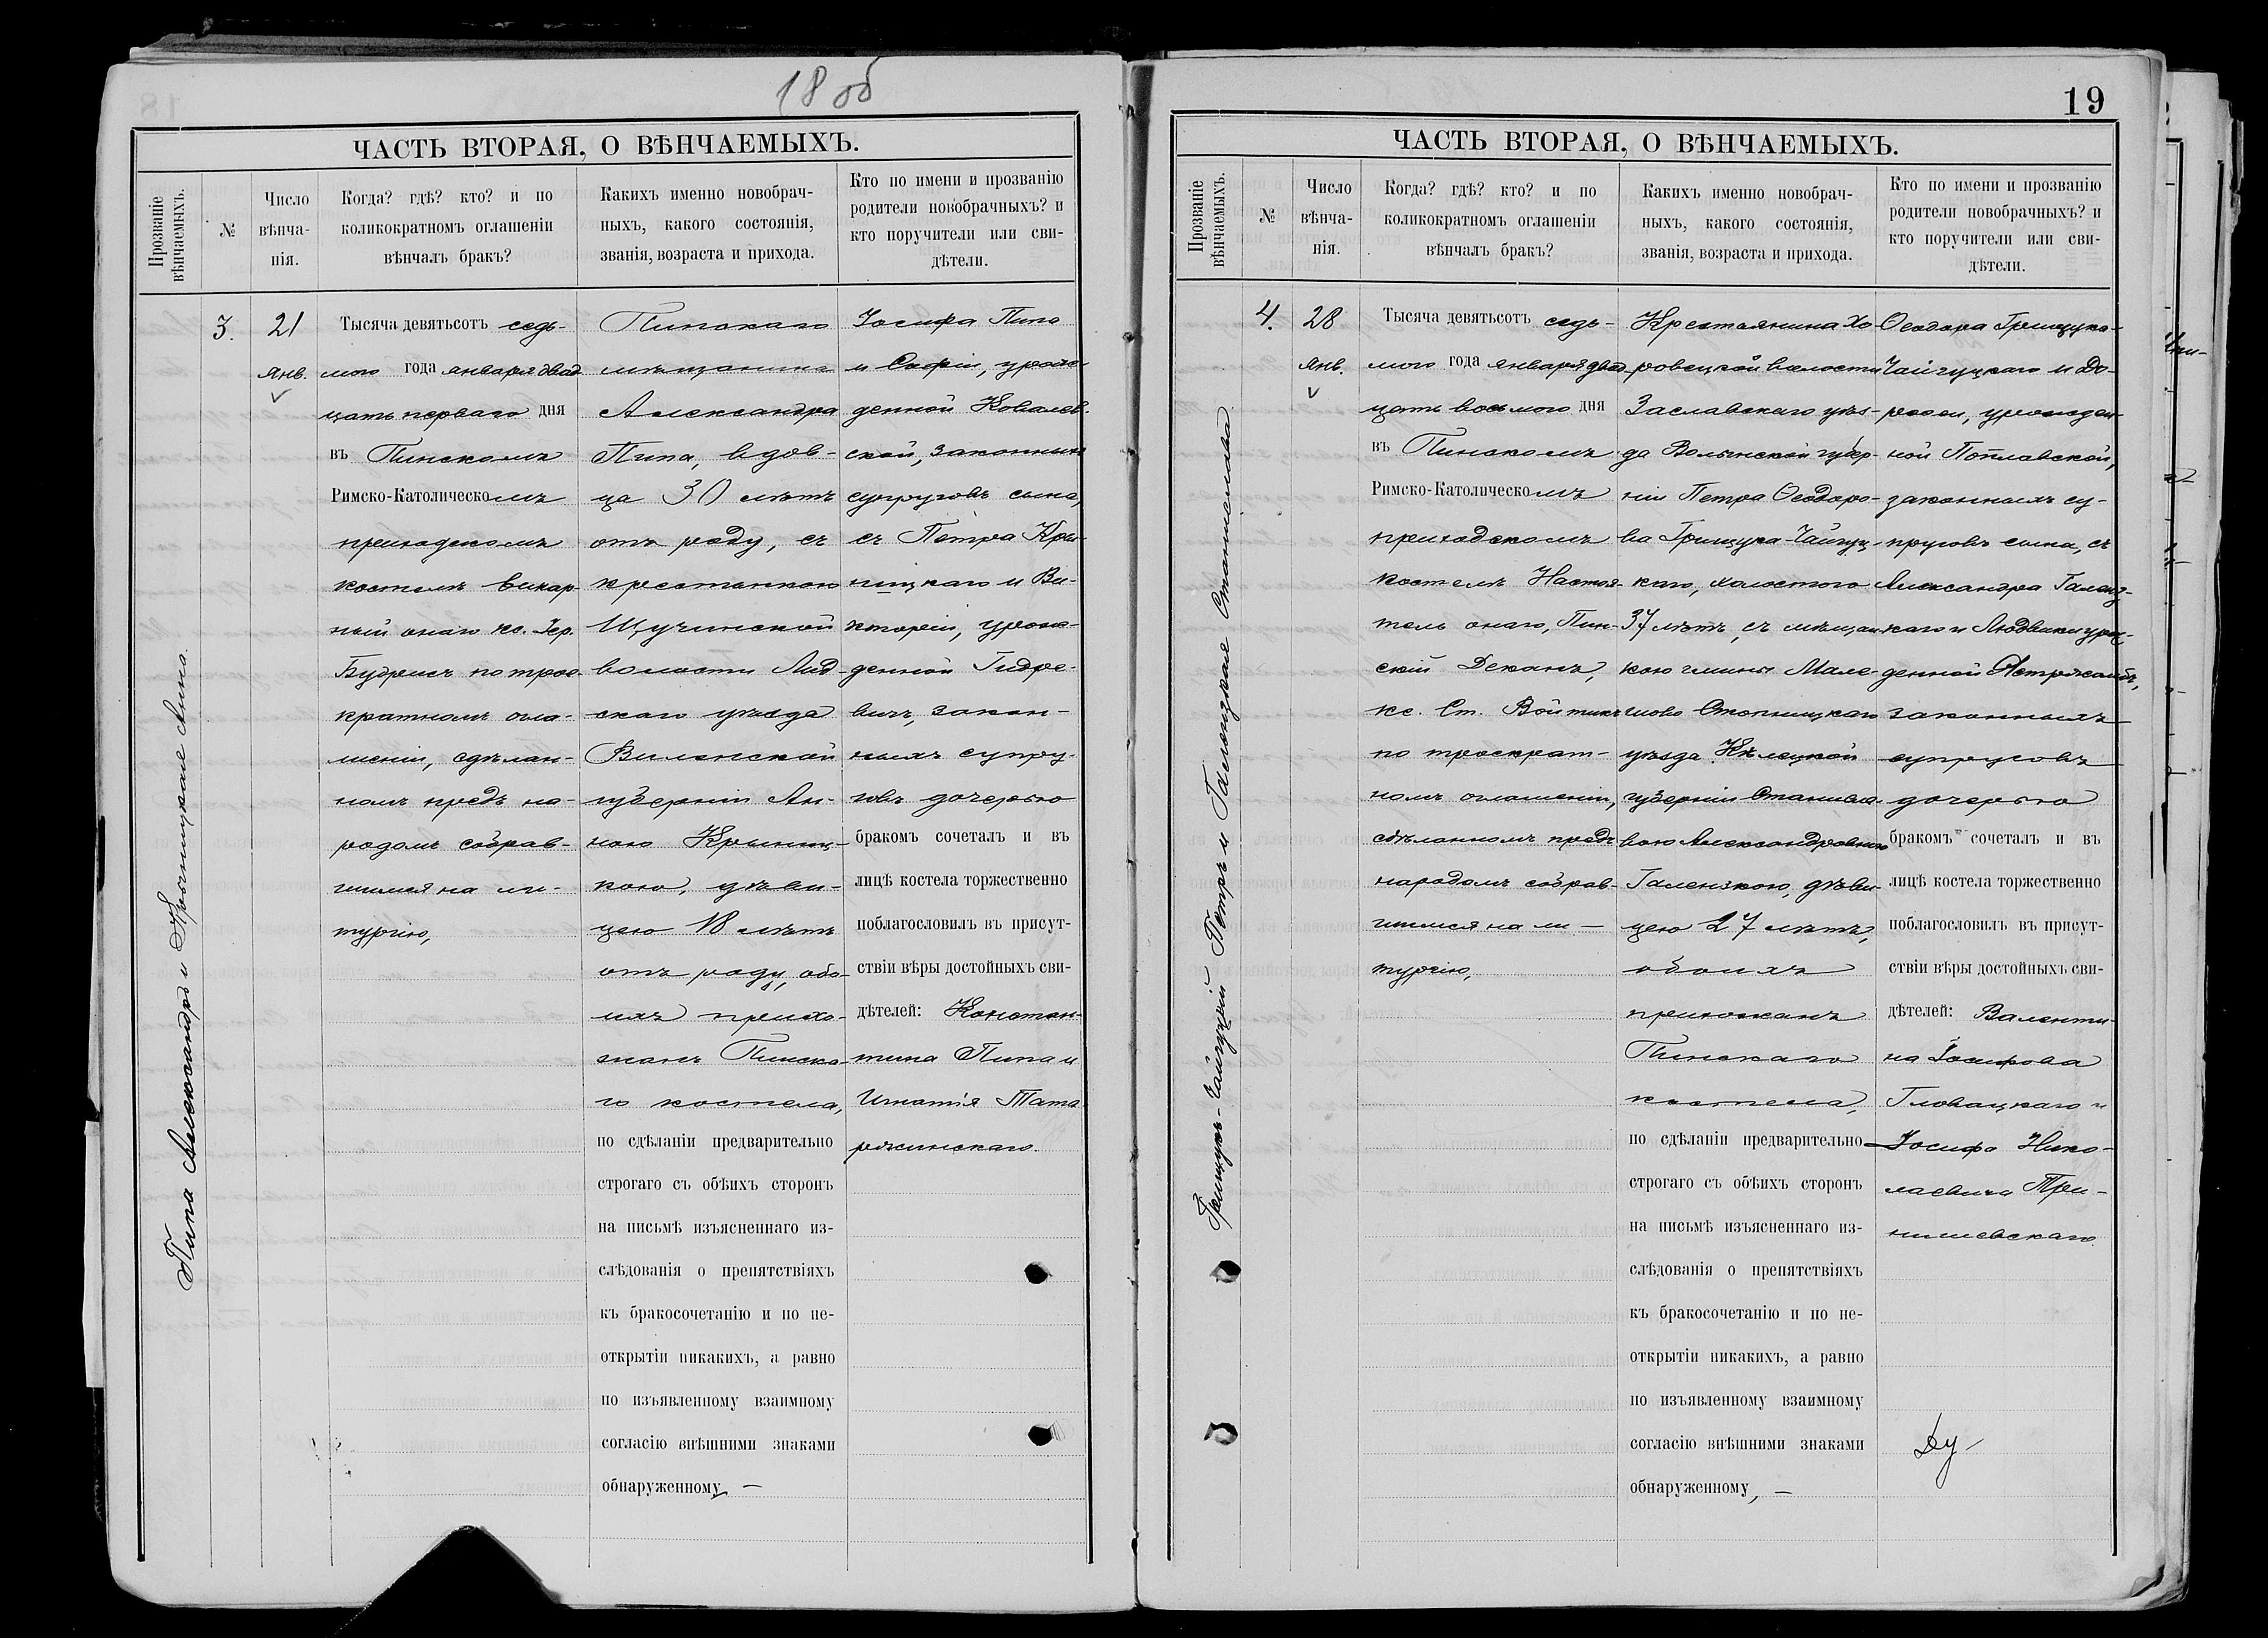 18 об
ЧАСТЬ ВТОРАЯ, О ВѢНЧАЕМЫХЪ.
Прозваніе
вѣнчаемыхъ.
№
Число
вѣнча-
нія.
Когда? гдѣ? кто? и по
коликократномъ оглашеніи
вѣнчалъ бракъ?
Какихъ именно новобрач-
ныхъ, какого состоянія,
званія, возраста и прихода.
Кто по имени и прозванію
родители новобрачныхъ? и
кто поручители или сви-
дѣтели.
Пипа Александръ и Крыницкая Анна.
3.
21
янв.
Тысяча девятьсотъ седь-
мого года января двад
цать перваго дня
въ Пинскомъ
Римско-Католическомъ
приходскомъ
костелѣ викар-
ный онаго кс. Іер.
Будрисъ по трое-
кратномъ огла-
шеніи, сдѣлан-
номъ предъ на-
родомъ собрав-
шимся на ли-
тургію,
Пинскаго
мѣщанина
Александра
Пипа, вдов-
ца 30 лѣтъ
отъ роду, съ
крестьянкою
Щучинской
волости Лид-
скаго уѣзда
Виленской
губерніи Ан-
ною Крыниц-
кою, дѣви-
цею 18 лѣтъ
отъ роду, обо-
ихъ прихо-
жанъ Пинска-
го костела,
по сдѣланіи предварительно
строгаго съ обѣихъ сторонъ
на письмѣ изъясненнаго из-
слѣдованія о препятствіяхъ
къ бракосочетанію и по не-
открытіи никакихъ, а равно
по изъявленному взаимному
согласію внѣшними знаками
обнаруженному, —
Іосифа Пипа
и Софіи, урож-
денной Ковалев-
ской, законныхъ
супруговъ сына,
съ Петра Кры-
ницкаго и Ви-
кторіи, урож-
денной Гидре-
вичъ, закон-
ныхъ супру-
говъ дочерью
бракомъ сочеталъ и въ
лицѣ костела торжественно
поблагословилъ въ присут-
ствіи вѣры достойныхъ сви-
дѣтелей: Констан-
тина Пипа и
Игнатія Тата
ржинскаго.
19
ЧАСТЬ ВТОРАЯ, О ВѢНЧАЕМЫХЪ.
Прозваніе
вѣнчаемыхъ.
№
Число
вѣнча-
нія.
Когда? гдѣ? кто? и по
коликократномъ оглашеніи
вѣнчалъ бракъ?
Какихъ именно новобрач-
ныхъ, какого состоянія,
званія, возраста и прихода.
Кто по имени и прозванію
родители новобрачныхъ? и
кто поручители или сви-
дѣтели.
Грищукъ-Чайгуцкій Петръ и Галензкая Станислава
4.
28
янв.
Тысяча девятьсотъ седь-
мого года января двад
цать восьмого дня
въ Пинскомъ
Римско-Католическомъ
приходскомъ
костелѣ Настоя-
тель онаго, Пин-
скій Деканъ,
кс. Ст. Войтикъ
по троекрат-
номъ оглашеніи,
сдѣланномъ предъ
народомъ собрав-
шимся на ли —
тургію,
Крестьянина Хо
ровецкой волости
Заславскаго уѣз-
да Волынской губер-
ніи Петра Ѳеодоро-
ва Грищука-Чайгуц-
каго, холостого
37 лѣтъ, съ мѣщан-
кою гмины Мале-
шово Стопницкаго
уѣзда Кѣлецкой
губерніи Станисла-
вою Александровною
Галензкою, дѣви-
цею 27 лѣтъ,
обоихъ
прихожанъ
Пинскаго
костела,
по сдѣланіи предварительно
строгаго съ обѣихъ сторонъ
на письмѣ изъясненнаго из-
слѣдованія о препятствіяхъ
къ бракосочетанію и по не-
открытіи никакихъ, а равно
по изъявленному взаимному
согласію внѣшними знаками
обнаруженному, —
Ѳеодора Грищука-
Чайгуцкаго и До-
роѳеи, урожден-
ной Поплавской,
законныхъ су-
пруговъ сына, съ
Александра Галенз-
каго и Людвики урож-
денной
законныхъ
супруговъ
дочерью
бракомъ сочеталъ и въ
лицѣ костела торжественно
поблагословилъ въ присут-
ствіи вѣры достойныхъ сви-
дѣтелей: Валенти-
на Іосифова
Гловацкаго и
Іосифа Нико-
лаевича Три-
нишевскаго.